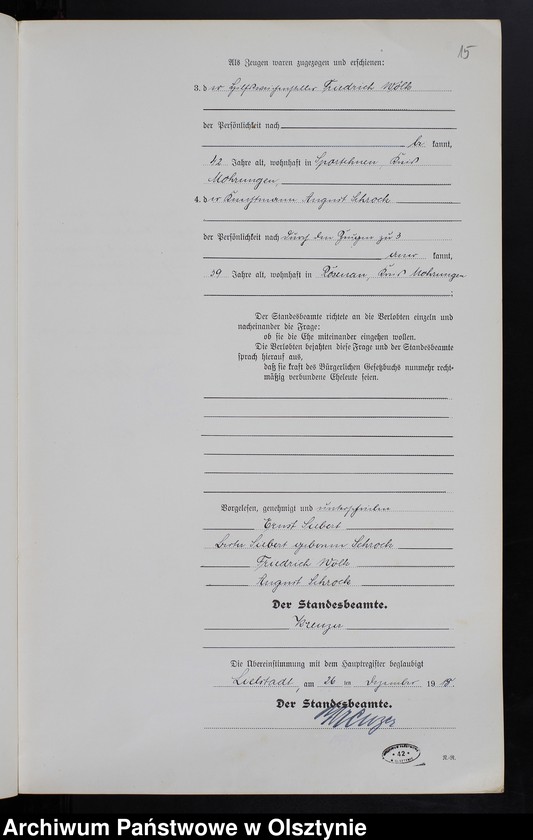 15
Als Zeugen waren zugezogen und erschienen:
3. der Hilfsweichensteller Friedrich Wölk
der Persönlichkeit nach
be kannt,
42 Jahre alt, wohnhaft in Sportehnen, Kreis
Mohrungen,
4. der August Schrock
der Persönlichkeit nach durch den Zeugen zu 3
aner kannt,
59 Jahre alt, wohnhaft in Rösenau, Kreis Mohrungen
;
Der Standesbeamte richtete an die Verlobten einzeln und
nacheinander die Frage:
ob sie die Ehe miteinander eingehen wollen.
Die Verlobten bejahten diese Frage und der Standesbeamte
sprach hierauf aus,
daß sie kraft des Bürgerlichen Gesetzbuchs nunmehr recht-
mäßig verbundene Eheleute seien.
Vorgelesen, genehmigt und unterschrieben
Ernst Siebert
Siebert geborene Schrock
Friedrich Wölk
August Schrock
Der Standesbeamte.
Krenzer
Die Übereinstimmung mit dem Hauptregister beglaubigt
Liebstadt, am 26 ten Dezember 1918.
Der Standesbeamte.
Krenzer
42
R.-R.
Archiwum Państwowe w Olsztynie